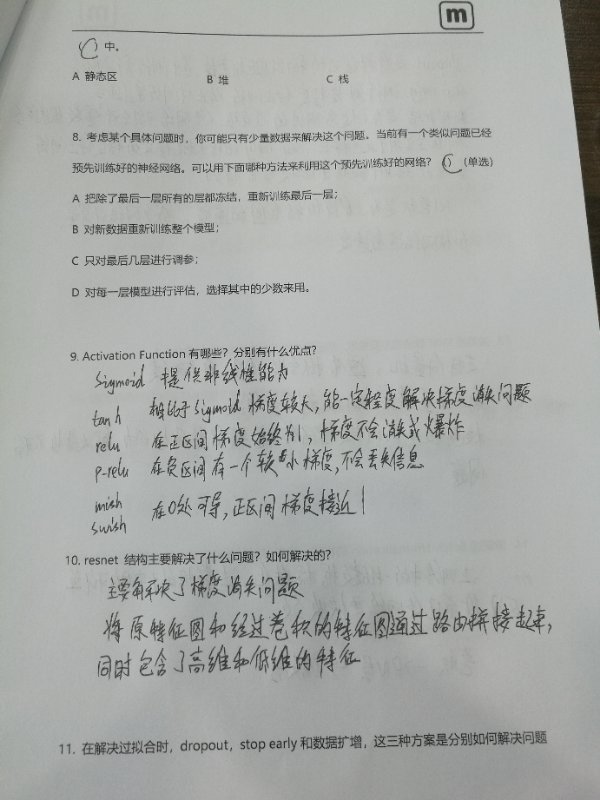 m
C 中。
A 静态区 B 堆 C 栈
8. 考虑某个具体问题时，你可能只有少量数据来解决这个问题。当前有一个类似问题已经
预先训练好的神经网络。可以用下面哪种方法来利用这个预先训练好的网络？（单选）
A 把除了最后一层所有的层都冻结，重新训练最后一层；
B 对新数据重新训练整个模型；
C 只对最后几层进行调参；
D 对每一层模型进行评估，选择其中的少数来用。
9. Activation Function 有哪些？分别有什么优点？
sigmoid 提供非线性能力
tanh 相比于sigmoid梯度较大，能一定程度解决梯度消失问题
relu 在正区间梯度始终为1，梯度不会消失或爆炸
p-relu 在负区间有一个较小梯度，不会丢失信息
mish
swish 在0处可导，正区间梯度接近1
10. resnet 结构主要解决了什么问题？如何解决的？
主要解决了梯度消失问题
将原特征图和经过卷积的特征图通过路由拼接起来，
同时包含了高维和低维的特征
11. 在解决过拟合时，dropout，stop early 和数据扩增，这三种方案是分别如何解决问题